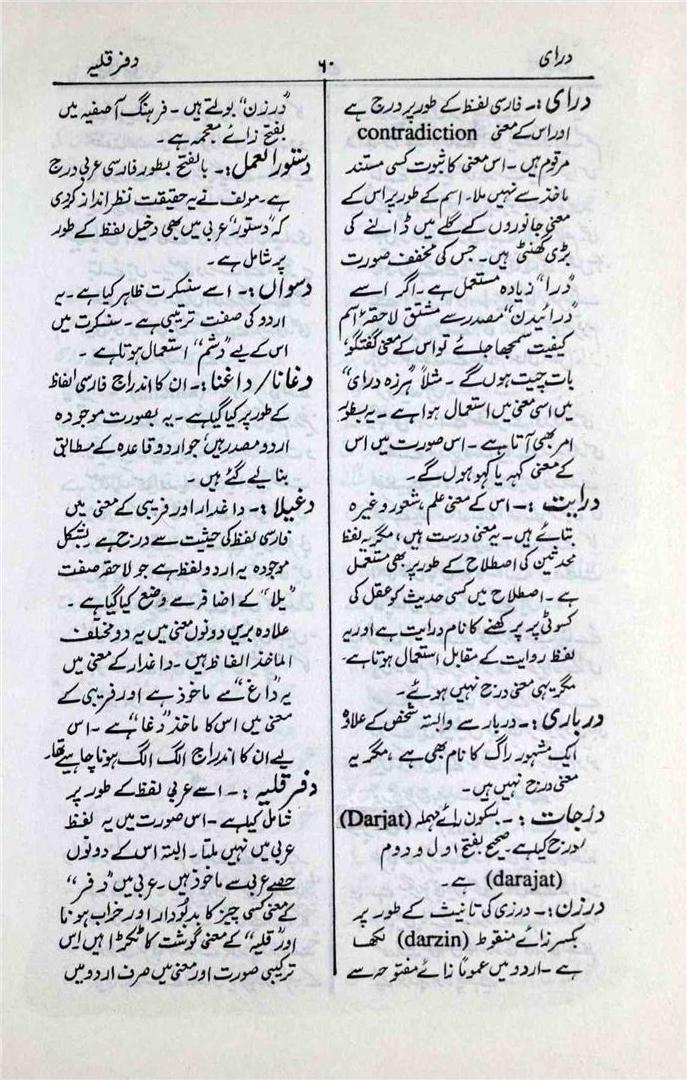 درای
۶۰
دفر قلیہ
درای :۔ فارسی لفظ کے طور پر درج ہے
اور اس کے معنی contradiction
مرقوم ہیں ۔ اس معنی کا ثبوت کسی مستند
ماخذ سے نہیں ملا۔ اسم کے طور پر اس کے
معنی جانوروں کے گلے میں ڈالنے کی
بڑی گھنٹی ہیں۔ جس کی مخفف صورت
"درا" زیادہ مستعمل ہے ۔ اگر اسے
"درائیدن" مصدر سے مشتق لاحقۂ اسم
کیفیت سمجھا جائے تو اس کے معنی گفتگو،
بات چیت ہوں گے ۔ مثلاً "ہرزہ درای"
میں اسی معنی میں استعمال ہوا ہے ۔ یہ بطور
امر بھی آتا ہے ۔ اس صورت میں اس
کے معنی کہہ یا کہو ہوں گے۔
درایت :۔ اس کے معنی علم، شعور وغیرہ
بتائے ہیں۔ یہ معنی درست ہیں، مگر یہ لفظ
محدثین کی اصطلاح کے طور پر بھی مستعمل
ہے ۔ اصطلاح میں کسی حدیث کو عقل کی
کسوٹی پر پرکھنے کا نام درایت ہے اور یہ
لفظ روایت کے مقابل استعمال ہوتا ہے۔
مگر یہی معنی درج نہیں ہوئے۔
درباری :۔ دربار سے وابستہ شخص کے علاوہ
ایک مشہور راگ کا نام بھی ہے ، مگر یہ
معنی درج نہیں ہیں۔
درجات :۔ بسکون رائے مہملہ (Darjat)
درج کیا ہے۔ صحیح بفتح اول و دوم
(darajat) ہے۔
درزن :۔ درزی کی تانیث کے طور پر
بکسر زائے منقوط (darzin) لکھا
ہے ۔ اردو میں عموماً زائے مفتوحہ سے
"درزن" بولتے ہیں ۔ فرہنگ آصفیہ میں
بفتح زائے معجمہ ہے ۔
دستور العمل :۔ بالفتح بطور فارسی عربی درج
ہے ۔ مولف نے یہ حقیقت نظر انداز کردی
کہ "دستور" عربی میں بھی دخیل لفظ کے طور
پر شامل ہے۔
دسواں :۔ اسے سنسکرت ظاہر کیا ہے ۔ یہ
اردو کی صفت ترتیبی ہے ۔ سنسکرت میں
اس کے لیے "دشم" استعمال ہوتا ہے ۔
دغانا/ داغنا :۔ ان کا اندراج فارسی الفاظ
کے طور پر کیا گیا ہے ۔ یہ بصورت موجودہ
اردو مصدر ہیں، جو اردو قاعدہ کے مطابق
بنا لیے گئے ہیں ۔
دغیلا :۔ داغدار اور فریبی کے معنی میں
فارسی لفظ کی حیثیت سے درج ہے بشکل
موجودہ یہ اردو لفظ ہے جو لاحقہ صفت
"یلا" کے اضافے سے وضع کیا گیا ہے ۔
علاوہ بریں دونوں معنی میں یہ دو مختلف
الماخذ الفاظ ہیں ۔ داغدار کے معنی میں
یہ "داغ" سے ماخوذ ہے اور فریبی کے
معنی میں اس کا ماخذ "دغا" ہے ۔ اس
لیے ان کا اندراج الگ الگ ہونا چاہیے تھا۔
دفر قلیہ :۔ اسے عربی لفظ کے طور پر
شامل کیا ہے ۔ اس صورت میں یہ لفظ
عربی میں نہیں ملتا ۔ البتہ اس کے دونوں
حصے عربی سے ماخوذ ہیں۔ عربی میں "دفر"
کے معنی کسی چیز کا بدبُودار اور خراب ہونا
اور "قلیہ" کے معنی گوشت کا ٹکڑا ہیں اس
ترکیبی صورت اور معنی میں صرف اردو میں